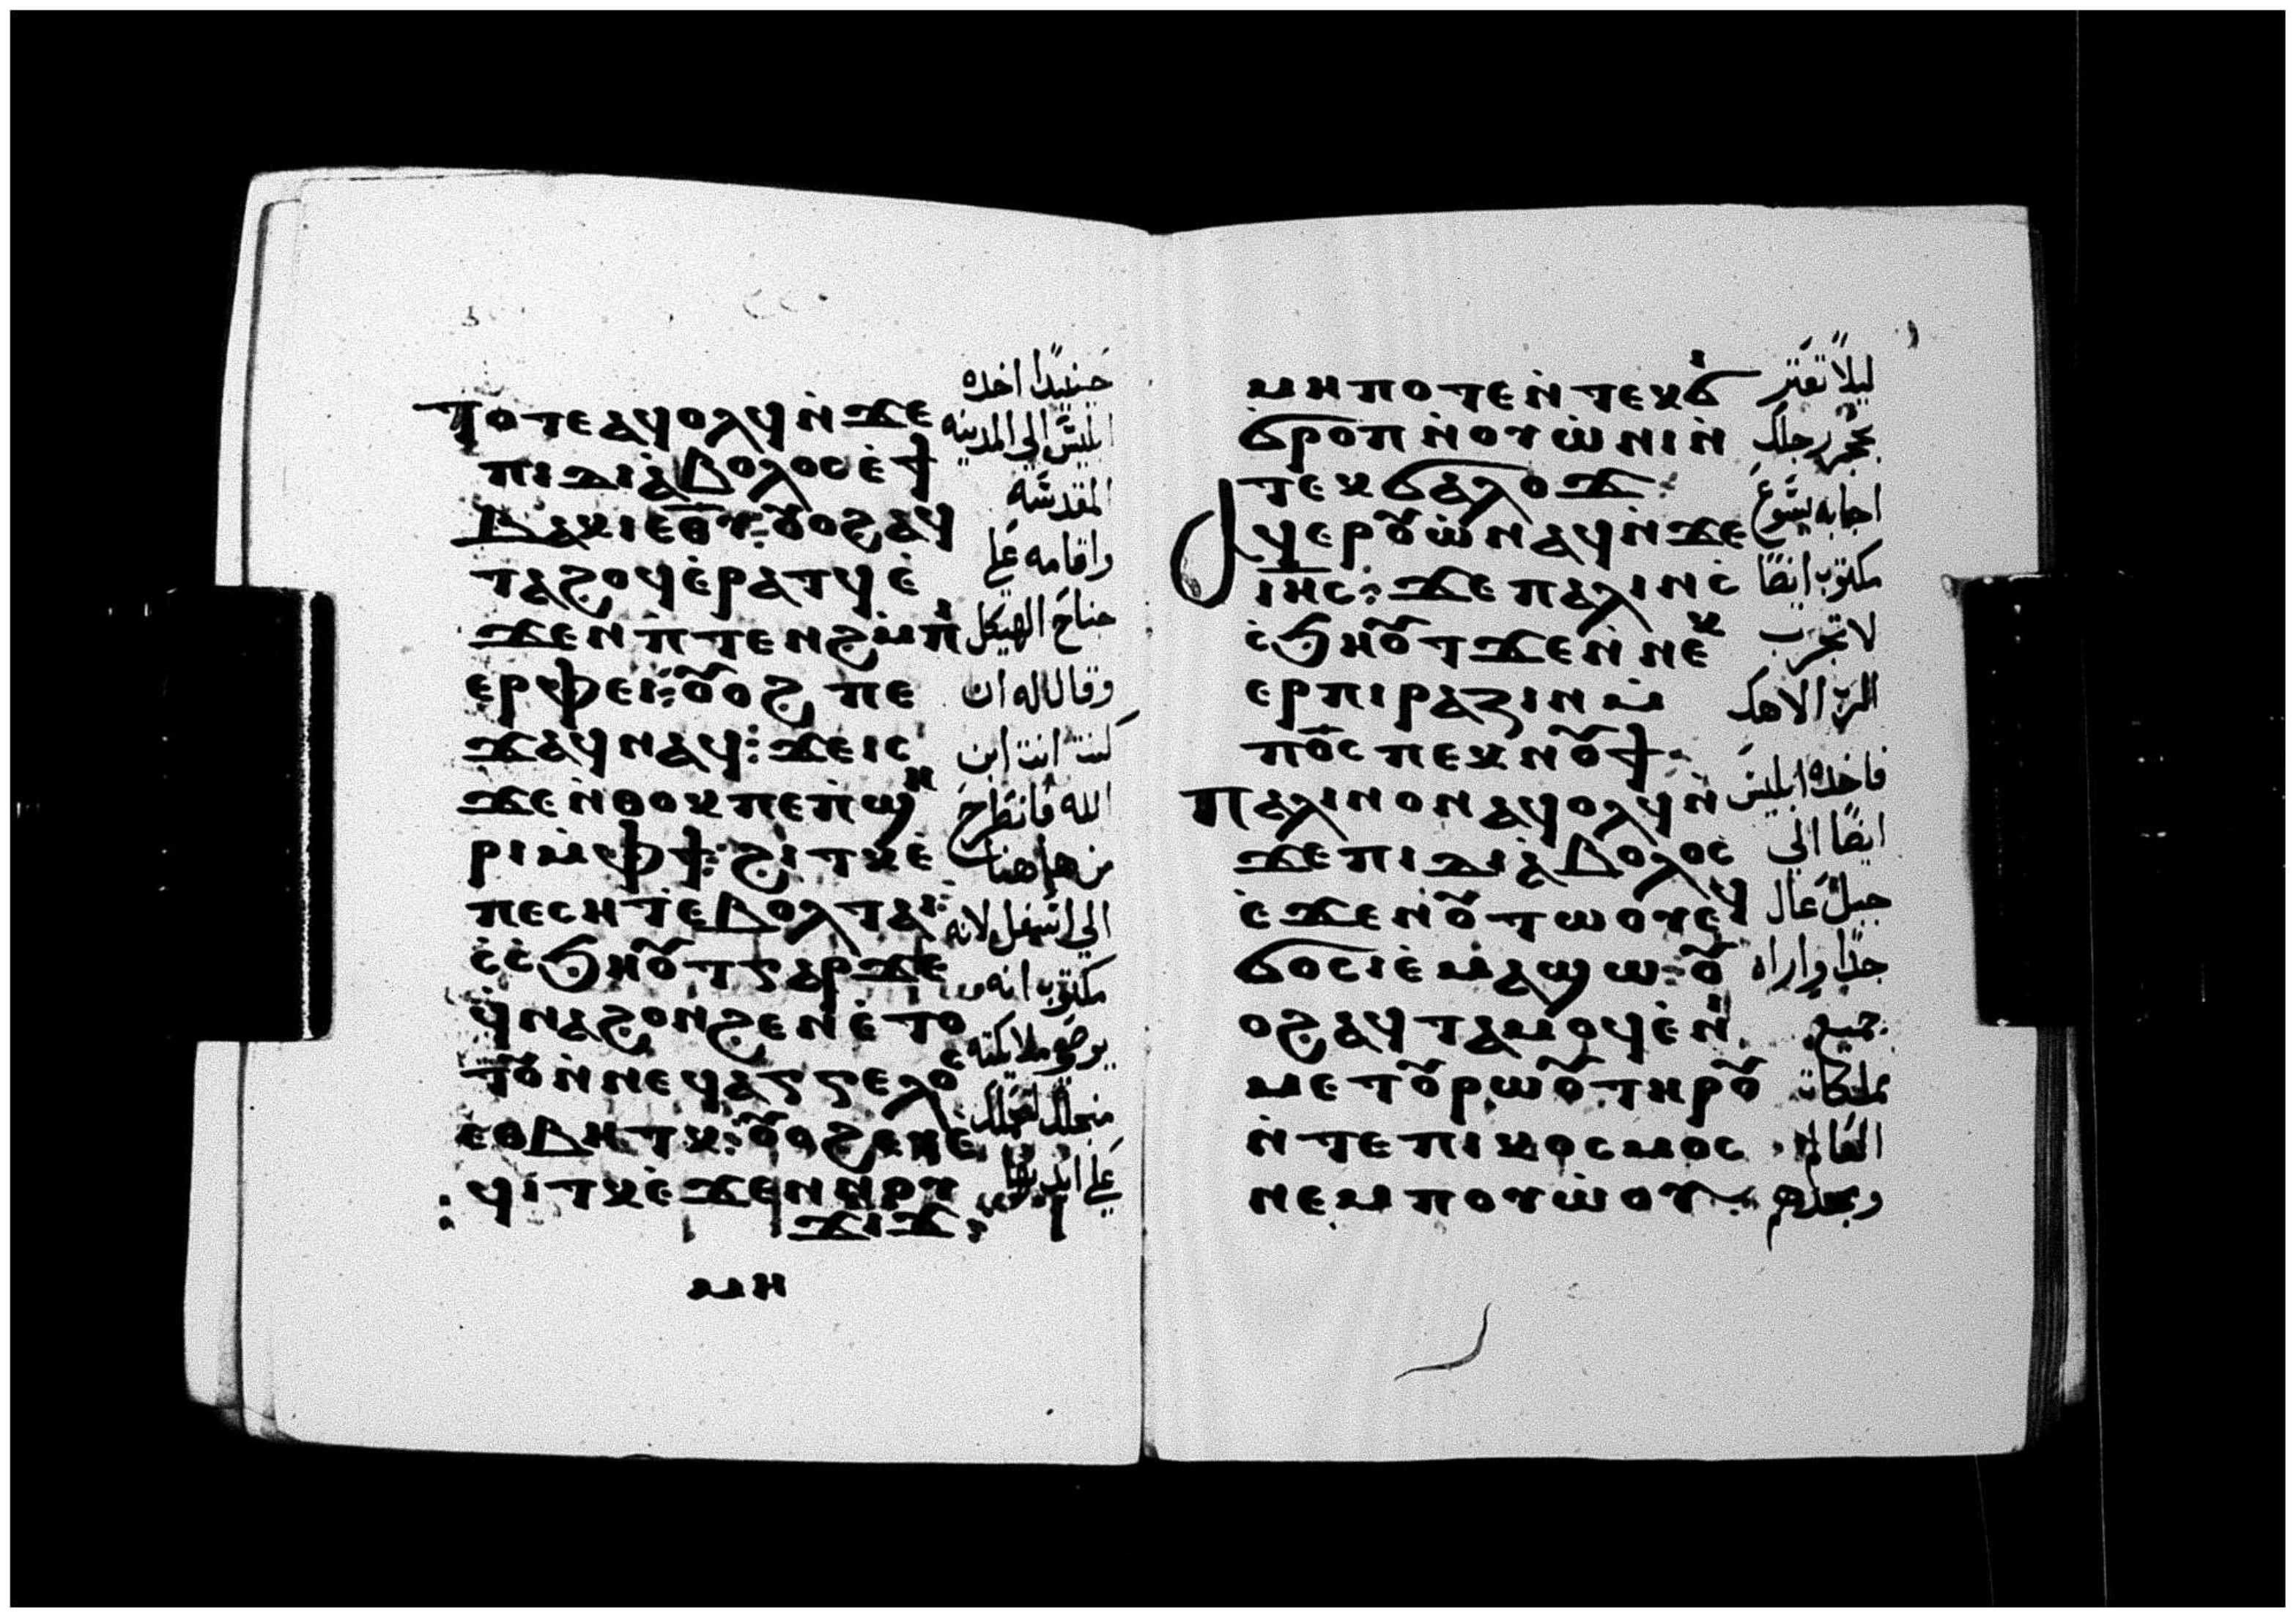 ⲧⲟⲧⲉ ⲁϥⲟⲗϥ ⲛ̇ϫⲉ
ⲡⲓⲇⲓⲁⲃⲟⲗⲟⲥ ⲉ̇ϯ
ⲃⲁⲕⲓ ⲉⲑⲩ: ⲟⲩⲟϩ ⲁϥ
ⲧⲁϩⲟϥ ⲉ̇ⲣⲁⲧϥ ⲉ̇
ϫⲉⲛ ⲡⲧⲉⲛϩ ⲙ̇ⲡⲓ
ⲉⲣⲫⲉⲓ: ⲟⲩⲟϩ ⲡⲉ
ϫⲁϥ ⲛⲁϥ: ϫⲉ ⲓⲥ
ϫⲉ ⲛ̇ⲑⲟⲕ ⲡⲉ ⲡ̇ϣⲏ
ⲣⲓ ⲙ̇ⲫϯ: ϩⲓⲧⲕ ⲉ̇
ⲡⲉⲥⲏⲧ ⲉⲃⲟⲗ ⲧⲁⲓ:
ⲥ̇ⲥ̇ϧⲏⲟⲩⲧ ⲅⲁⲣ ϫⲉ
ϥ̇ⲛⲁϩⲟⲛϩⲉⲛ ⲉ̇ⲧⲟ
ⲧⲟⲩ ⲛ̇ⲛⲉϥⲁⲅⲅⲉⲗⲟⲥ
ⲉⲑⲃⲏⲧⲕ: ⲟⲩⲟϩ ⲉⲩⲉ
ϥⲓⲧⲕ ⲉ̇ϫⲉⲛ ⲛⲟⲩ
ϫⲓϫ:
ⲙⲏ
حينيذًا اخده
ابليس الي المدينه
المقدسه
واقامه علي
جناح الهيكل
وقال له ان
كنت انت ابن
الله فانطرح
من هاهنا
الي اسفل لانه
مكتوب انه
يوصي ملايكته
علي ايديهم
ⲙⲏⲡⲟⲧⲉ ⲛ̇ⲧⲉⲕϭⲓ
ϭⲣⲟⲡ ⲛ̇ⲟⲩⲱ̇ⲛⲓ ⲛ̇
ⲧⲉⲕϭⲁⲗⲟϫ:
ⲁϥⲉⲣⲟⲩⲱ̇ ⲛⲁϥ ⲛ̇ϫⲉ
ⲓⲏⲥ: ϫⲉ ⲡⲁⲗⲓⲛ ⲥ̇
ⲥ̇ϧⲏⲟⲩⲧ ϫⲉ ⲛ̇ⲛⲉⲕ
ⲉⲣⲡⲓⲣⲁⲍⲓⲛ ⲙ̇
ⲡⲟ̅ⲥ̅ ⲡⲉⲕⲛⲟⲩϯ:
ⲡⲁⲗⲓⲛ ⲟⲛ ⲁϥⲟⲗϥ ⲛ̇
ϫⲉ ⲡⲓⲇⲓⲁⲃⲟⲗⲟⲥ
ⲉ̇ϫⲉⲛ ⲟⲩⲧⲱⲟⲩ ⲉϥ
ϭⲟⲥⲓ ⲉ̇ⲙⲁϣⲱ: ⲟⲩ
ⲟϩ ⲁϥⲧⲁⲙⲟϥ ⲉ̇ⲛⲓ
ⲙⲉⲧⲟⲩⲣⲱⲟⲩ ⲧⲏⲣⲟⲩ
ⲛ̇ⲧⲉ ⲡⲓⲕⲟⲥⲙⲟⲥ
ⲛⲉⲙ ⲡⲟⲩⲱ̇ⲟⲩ
ليلًا تعتر
بحجر رجلك
اجابه يسوع
مكتوب ايضًا
لا تجرب
الرب الاهك
فاخده ابليس
ايضًا الي
جبل عال
جدًا واراه
جميع
مملكات
العالم
ومجدهم